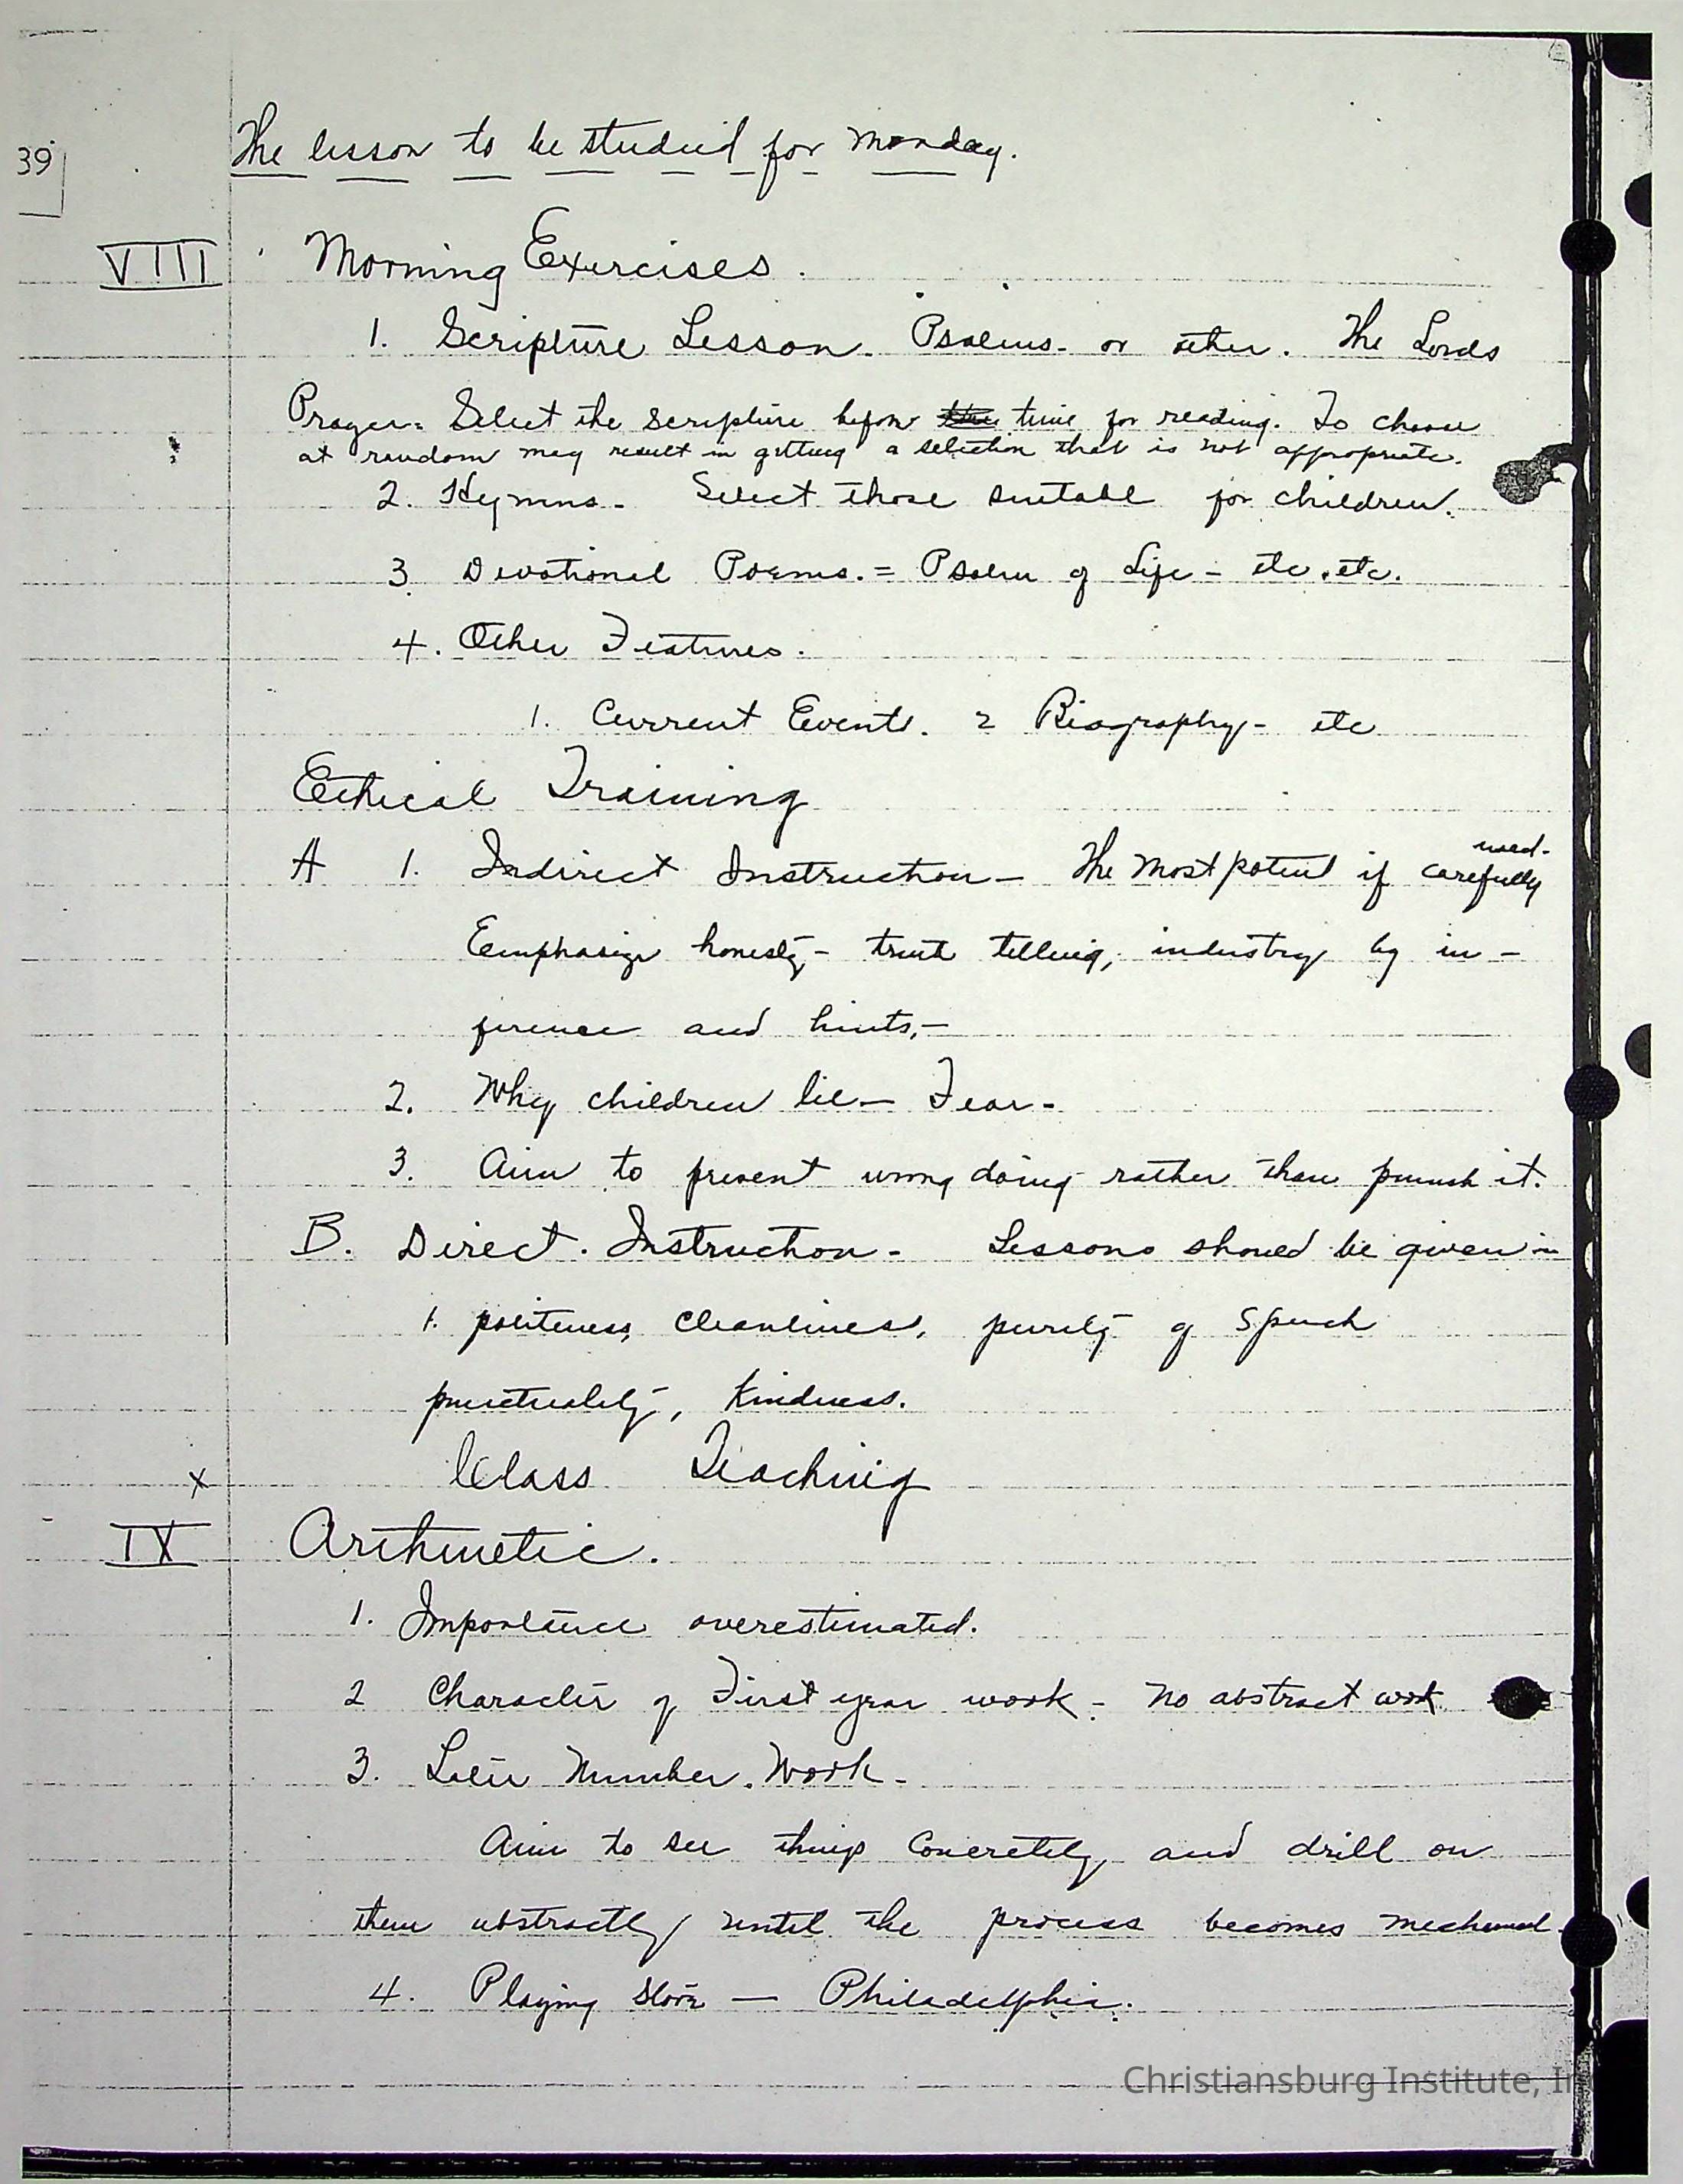 39
The lesson to be studied for Monday.
VIII Morning Exercises.
1. Scripture Lesson. Psalms - or other. The Lords
Prayer = Select the scripture before time for reading. To choose
at random may result in getting a selection that is not appropriate.
2. Hymns - Select those suitable for children.
3. Devotional Poems. = Psalm of Life - etc. etc.
4. Other Features.
1. Current Events. 2 Biography - etc
Ethical Training
A 1. Indirect Instruction - The most potent if carefully used.
Emphasize honesty - truth telling, industry by in -
ference and hints, -
2. Why children lie - Fear -
3. Aim to prevent wrong doing rather than punish it.
B. Direct. Instruction - Lessons should be given in
1. politeness, cleanliness, purity of speech
punctuality, kindness.
x Class Teaching
IX Arithmetic.
1. Importance overestimated.
2 Character of First year work - no abstract work
3. Later Number. Work -
Aim to see things concretely and drill on
them abstractly until the process becomes mechanical
4. Playing store — Philadelphia.
Christiansburg Institute, In